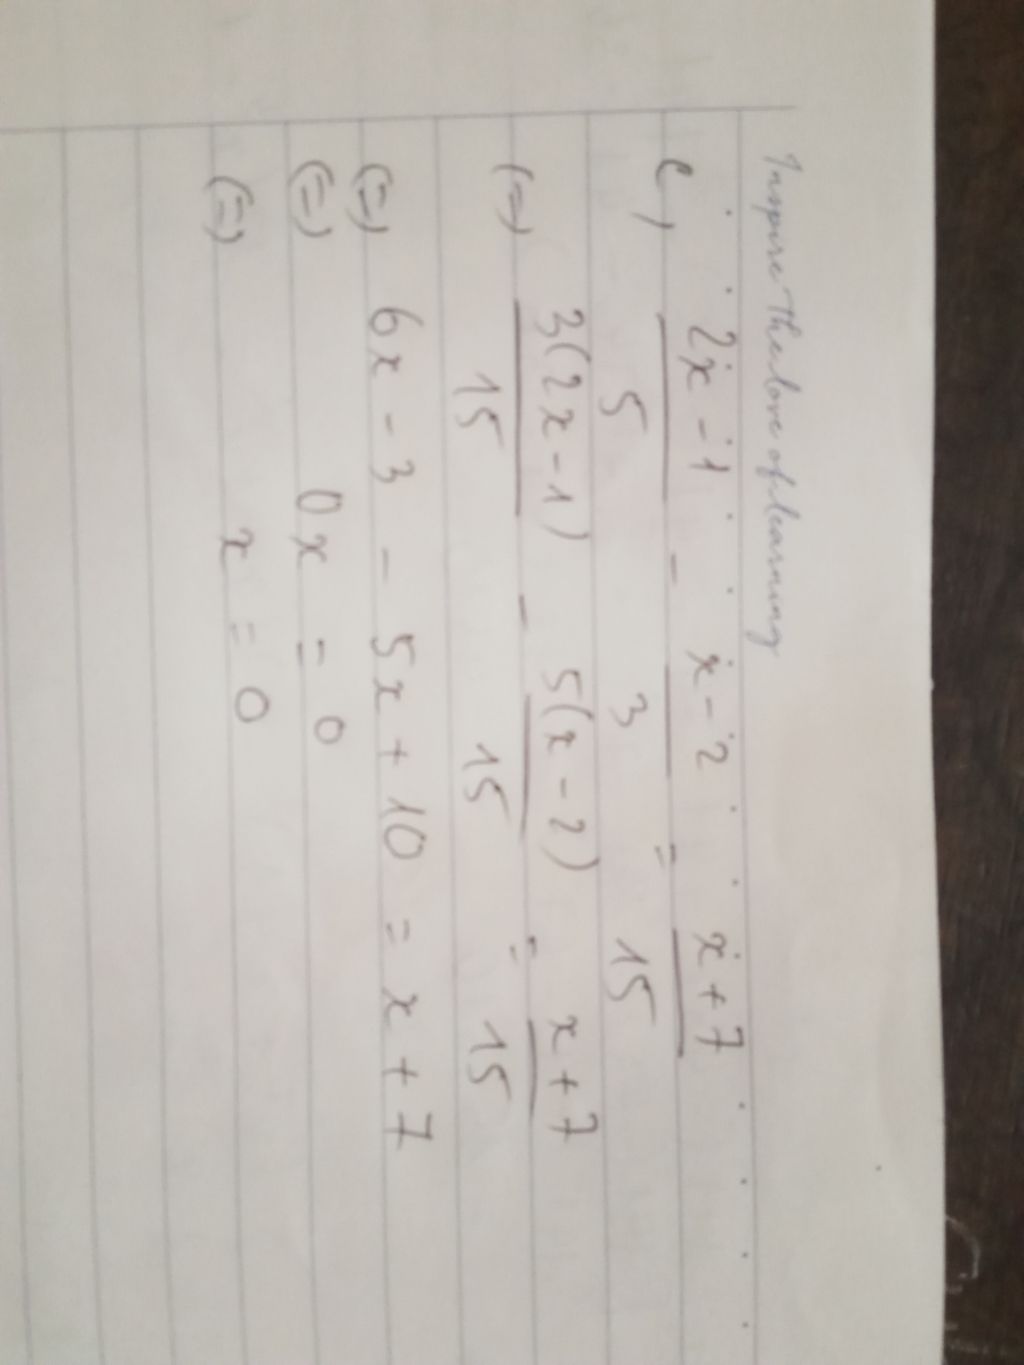 Inspire the love of learning
c, 2x - 1 / 5 - x - 2 / 3 = x + 7 / 15
(=) 3(2x - 1) / 15 - 5(x - 2) / 15 = x + 7 / 15
(=) 6x - 3 - 5x + 10 = x + 7
(=) 0x = 0
(=) x = 0